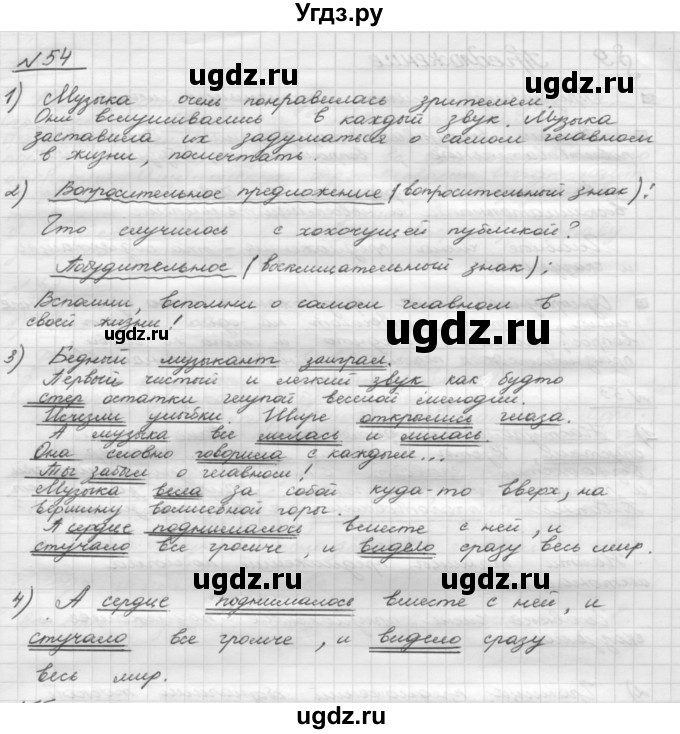 Угдз.ру
N 54
1) Музыка очень понравилась зрителям.
Они вслушивались в каждый звук. Музыка
заставила их задуматься о самом главном
в жизни, помечтать.
2) Вопросительное предложение (вопросительный знак):
Что случилось с хохочущей публикой?
Побудительное (восклицательный знак):
Вспомни, вспомни о самом главном в
своей жизни!
3) Бедный музыкант заиграл.
Первый чистый и легкий звук как будто
стер остатки глупой веселой мелодии.
Исчезли улыбки. Шире открылись глаза.
А музыка все лилась и лилась.
Она словно говорила с каждым...
Ты забыл о главном!
Музыка вела за собой куда-то вверх, на
вершину волшебной горы.
А сердце поднималось вместе с ней, и
стучало все громче, и видело сразу весь мир.
4) А сердце поднималось вместе с ней, и
стучало все громче, и видело сразу
весь мир.
ugdz.ru
ugdz.ru
ugdz.ru
ugdz.ru
ugdz.ru
ugdz.ru
ugdz.ru
ugdz.ru